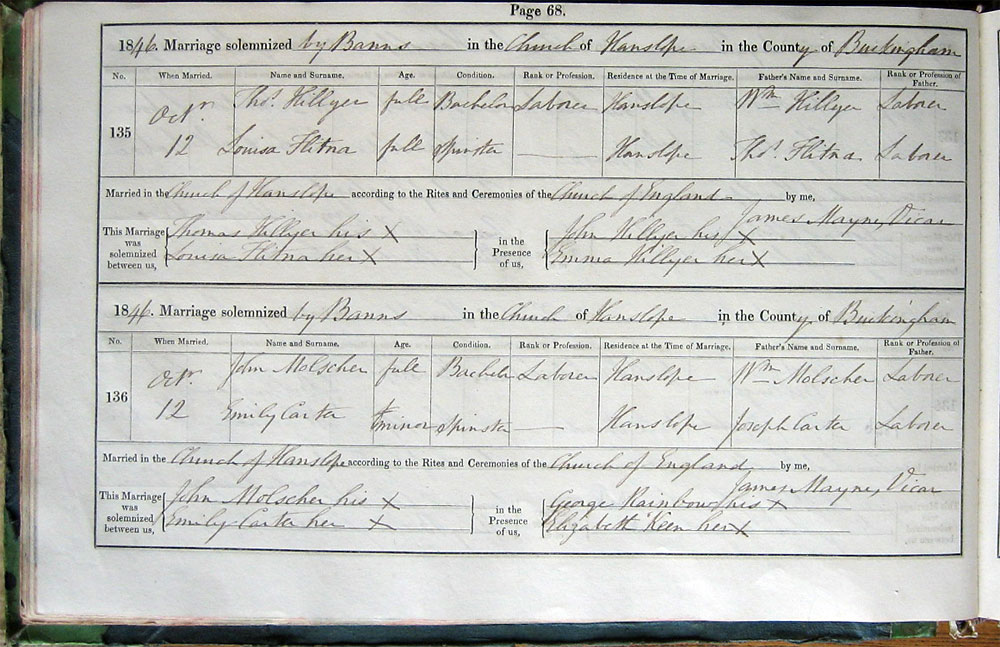 Page 68.
1846. Marriage solemnized by Banns in the Church of Hanslope in the County of Buckingham
No. When Married. Name and Surname. Age. Condition. Rank or Profession. Residence at the Time of Marriage. Father's Name and Surname. Rank or Profession of Father.
135 Octr. 12 Thos. Hillyer full Bachelor Laborer Hanslope Wm Hillyer Laborer
Louisa Flitna full Spinster — Hanslope Thos. Flitna Laborer
Married in the Church of Hanslope according to the Rites and Ceremonies of the Church of England by me,
James Mayne, Vicar
This Marriage was solemnized between us, Thomas Hillyer his X in the Presence of us, John Hillyer his X
Louisa Flitna her X Emma Hillyer her X
1846. Marriage solemnized by Banns in the Church of Hanslope in the County of Buckingham
No. When Married. Name and Surname. Age. Condition. Rank or Profession. Residence at the Time of Marriage. Father's Name and Surname. Rank or Profession of Father.
136 Octr. 12 John Molscher full Bachelor Laborer Hanslope Wm Molscher Laborer
Emily Carter minor Spinster — Hanslope Joseph Carter Laborer
Married in the Church of Hanslope according to the Rites and Ceremonies of the Church of England by me,
James Mayne, Vicar
This Marriage was solemnized between us, John Molscher his X in the Presence of us, George Rainbow his X
Emily Carter her X Elizabeth Keen her X